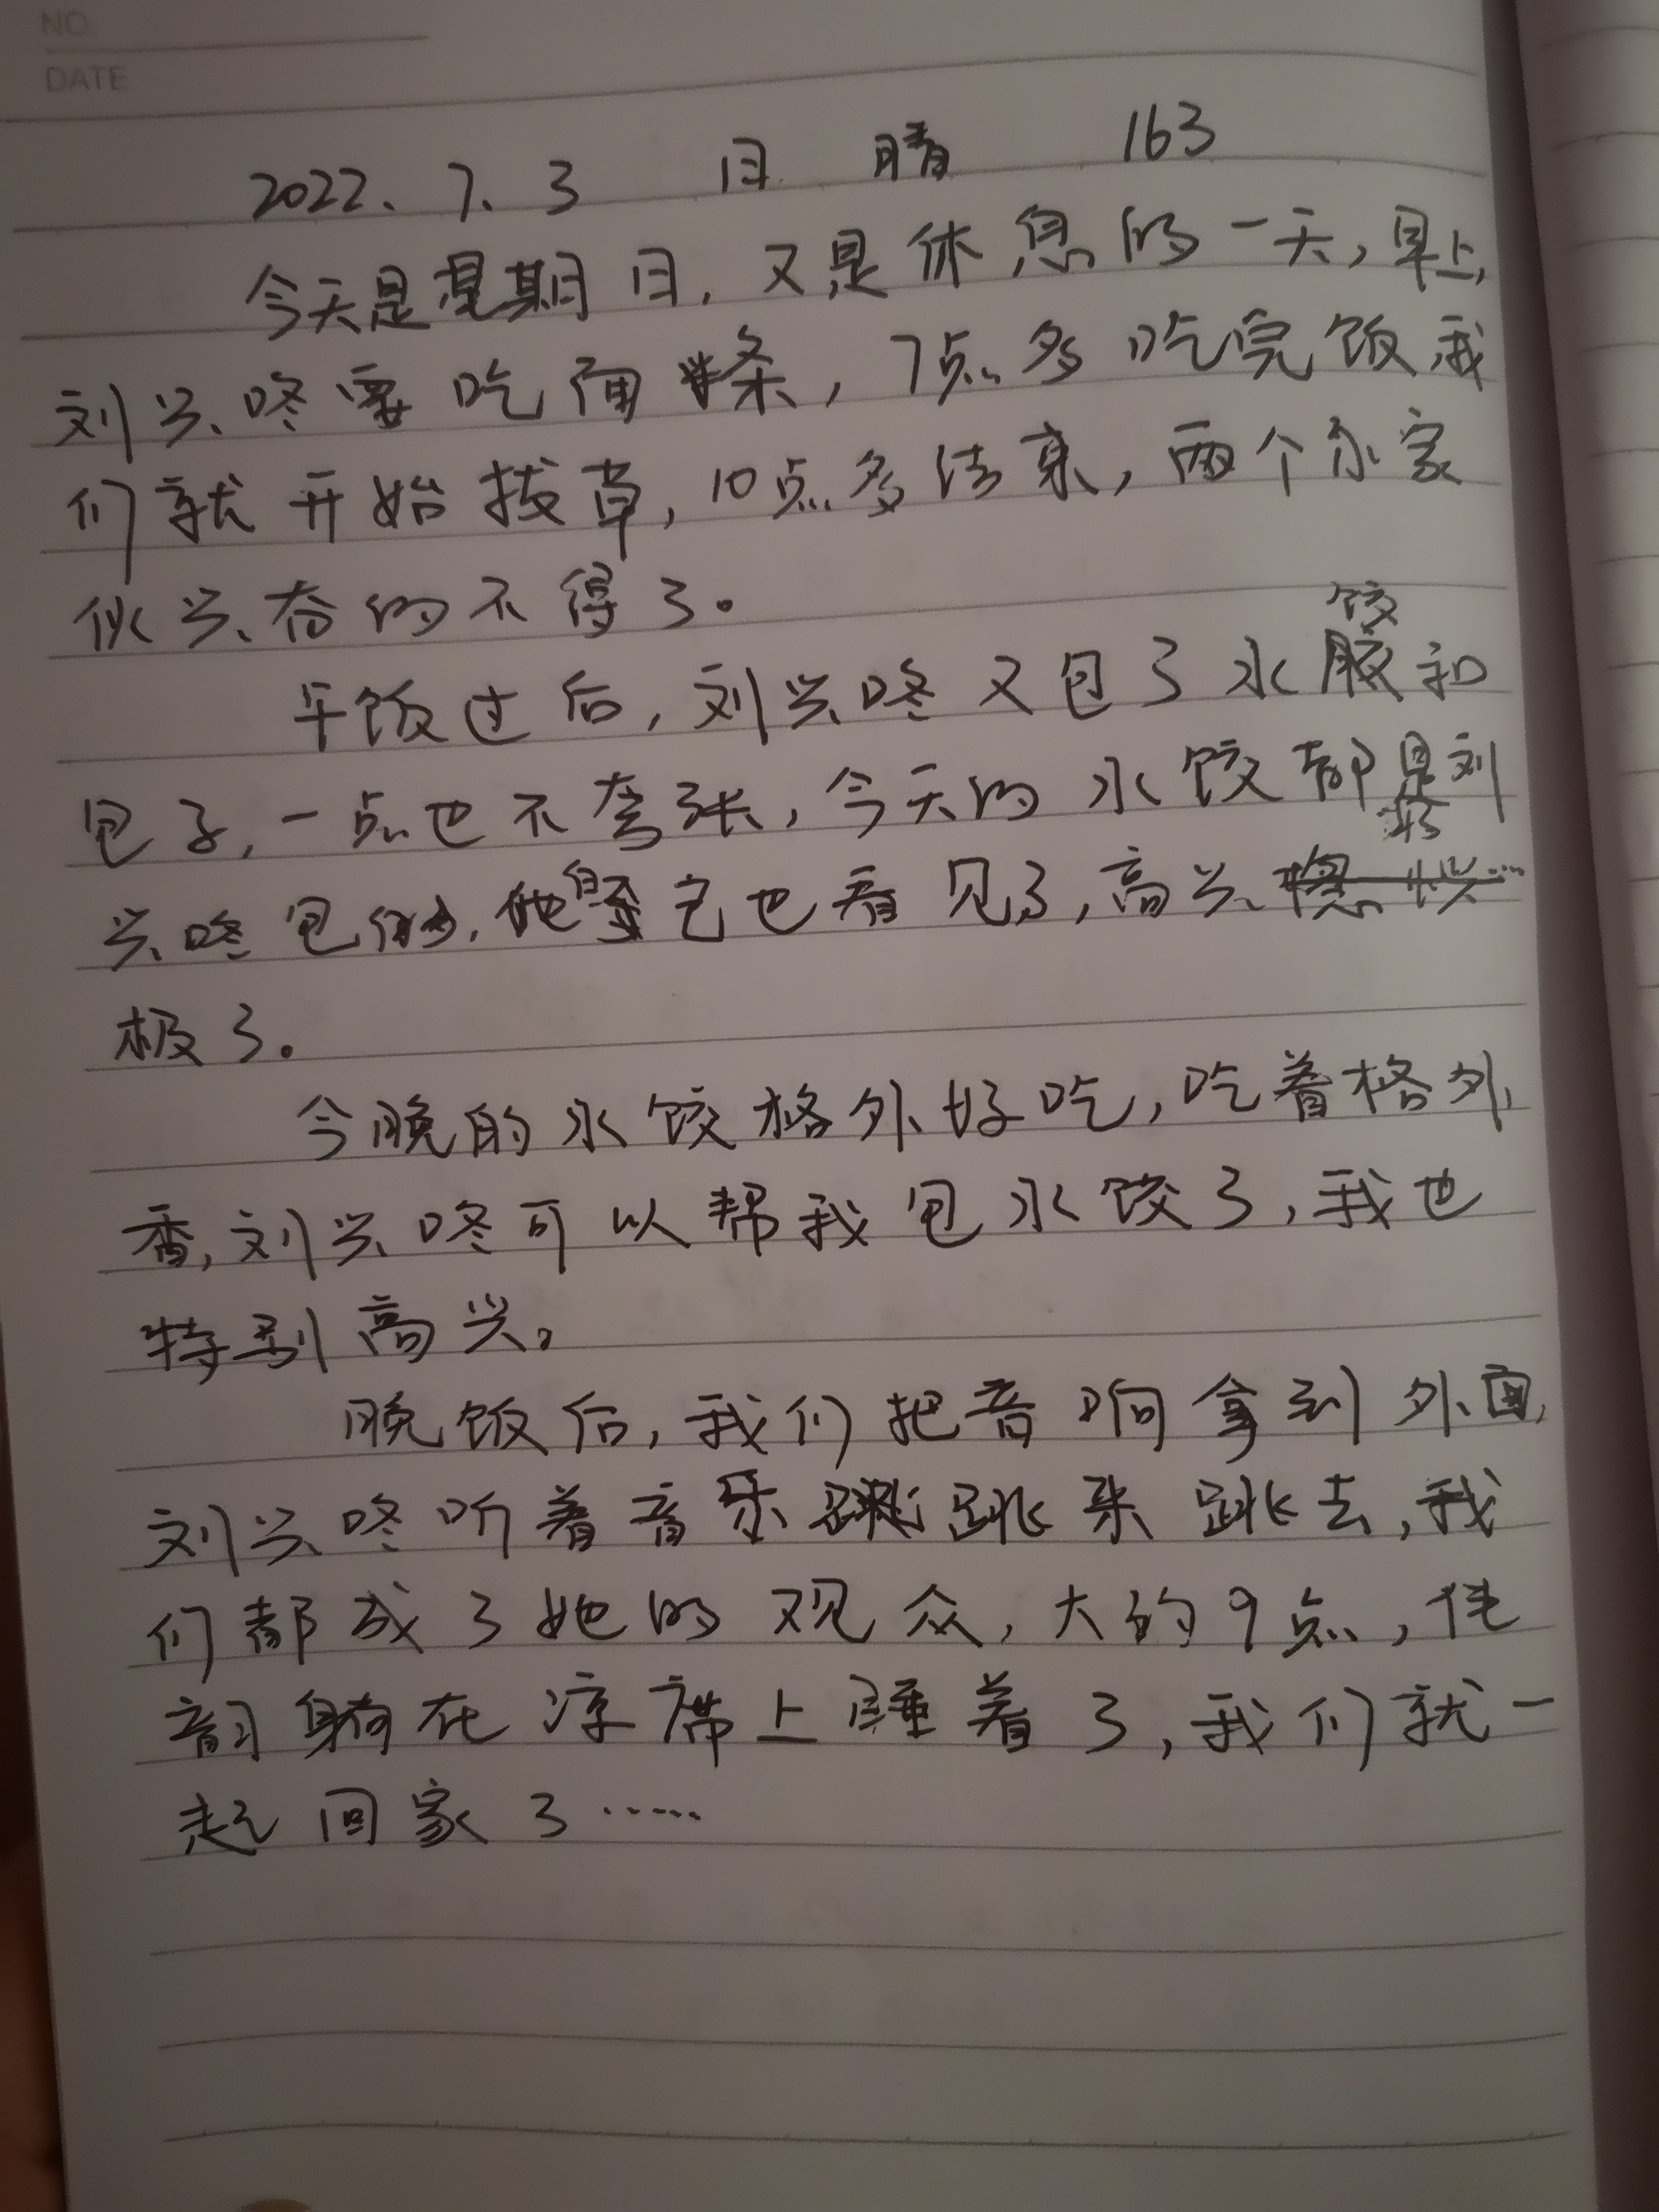 NO.
DATE
2022、7、3 日 晴 163
今天是星期日,又是休息的一天,早上,
刘兴咚要吃面条,7点多吃完饭我
们就开始拔草,10点多结束,两个小家
伙兴奋的不得了。
午饭过后,刘兴咚又包了水饺和
包子,一点也不夸张,今天的水饺都是刘
兴咚包的,她自己也看见了,高兴
极了。
今晚的水饺格外好吃,吃着格外
香,刘兴咚可以帮我包水饺了,我也
特别高兴。
晚饭后,我们把音响拿到外面,
刘兴咚听着音乐跳来跳去,我
们都成了她的观众,大约9点,佳
韵躺在凉席上睡着了,我们就一
起回家了……